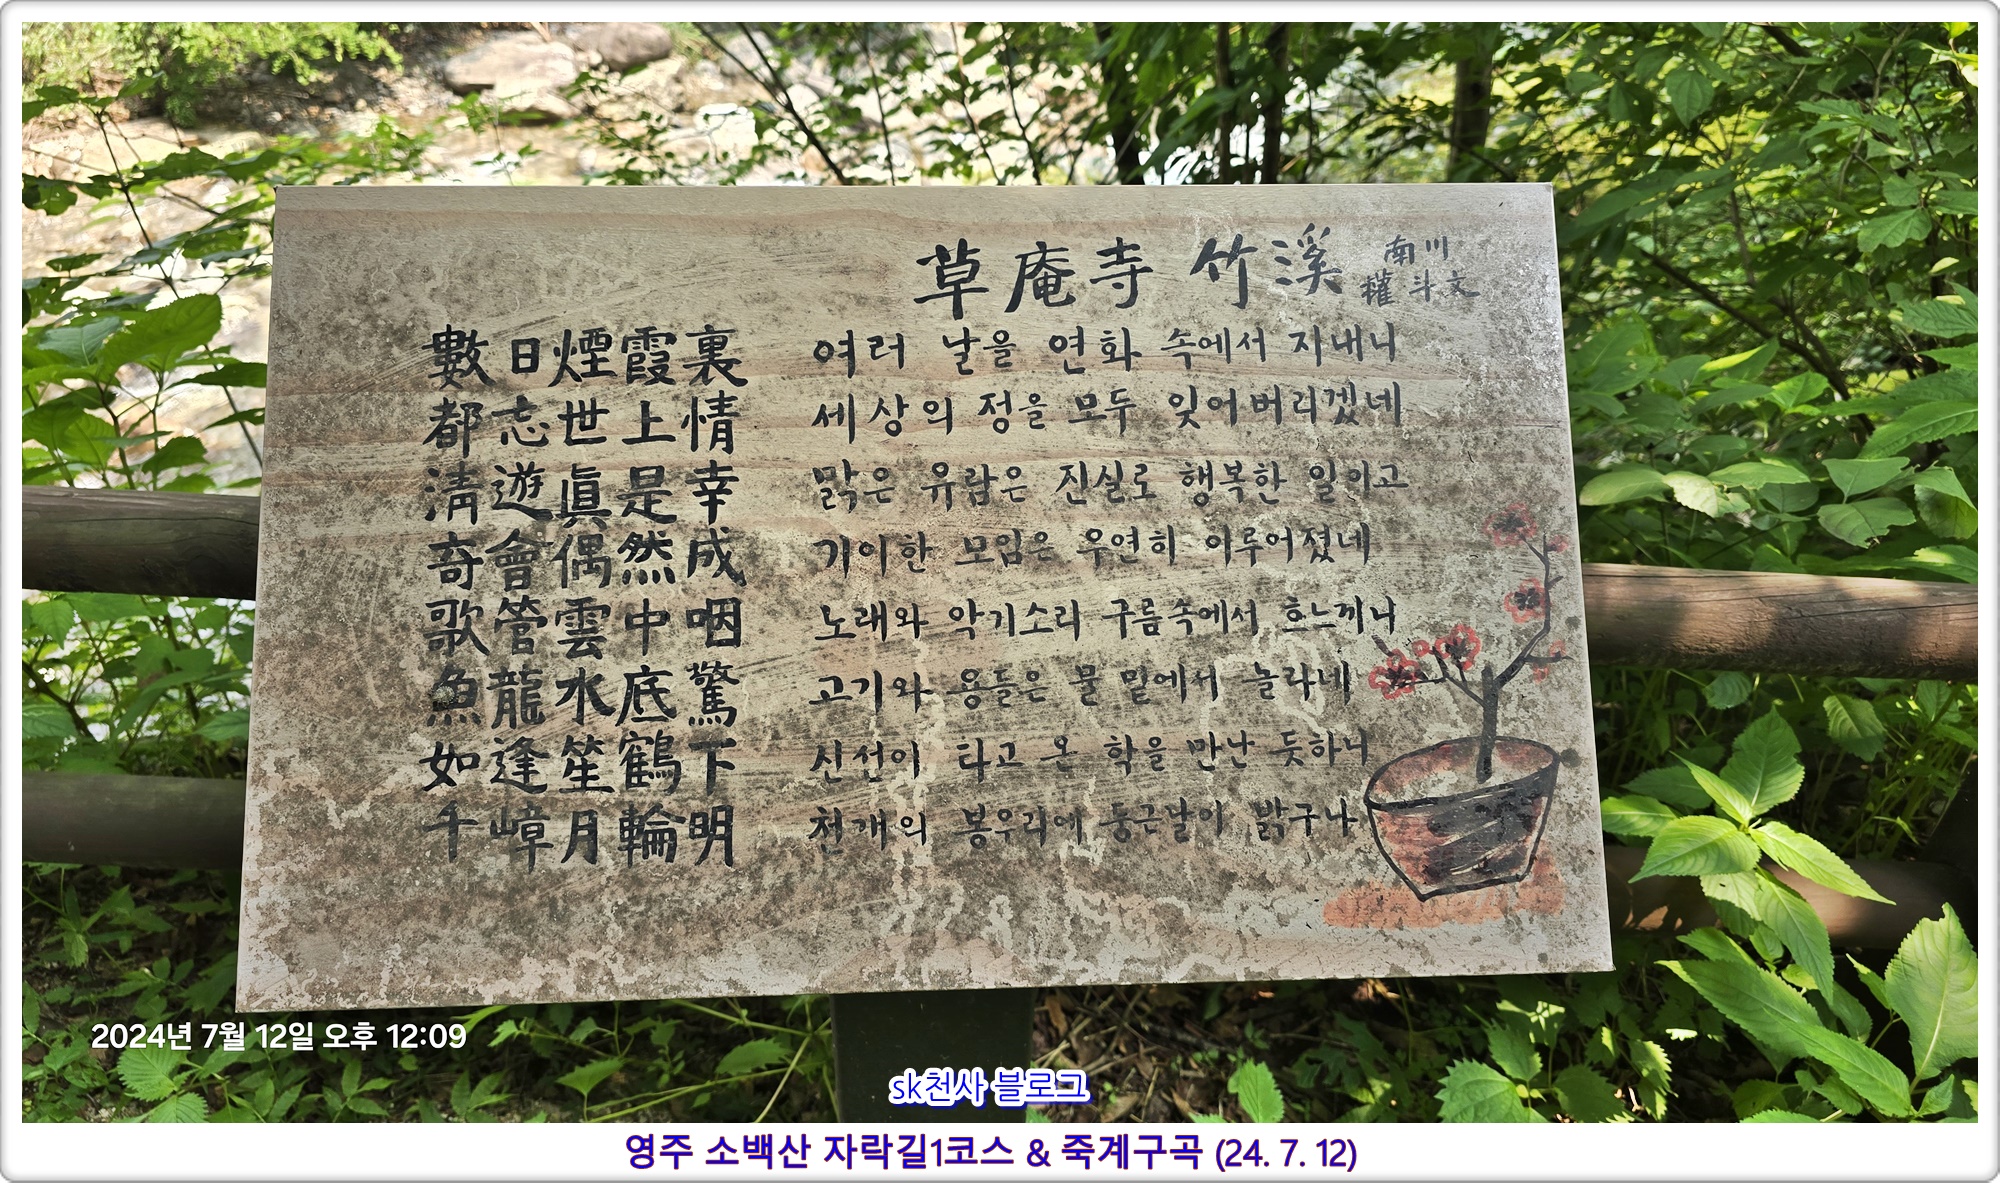 草庵寺 竹溪 南川 權斗文
數日煙霞裏 여러 날을 연화 속에서 지내니
都志世上情 세상의 정을 모두 잊어버리겠네
淸遊眞是幸 맑은 유람은 진실로 행복한 일이고
奇會偶然成 기이한 모임은 우연히 이루어졌네
歌管雲中咽 노래와 악기소리 구름속에서 흐느끼니
魚龍水底驚 고기와 용들은 물 밑에서 놀라네
如逢笙鶴下 신선이 타고 온 학을 만난 듯하니
千嶂月輪明 천개의 봉우리에 둥근달이 밝구나
2024년 7월 12일 오후 12:09
sk천사 블로그
영주 소백산 자락길1코스 & 죽계구곡 (24. 7. 12)